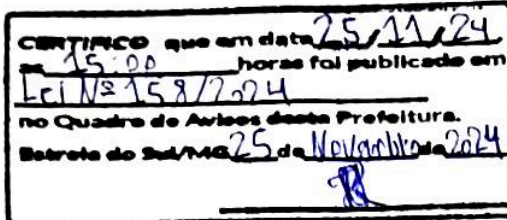 CERTIFICO que em data 25/11/24
as 15:00 horas foi publicado em
Lei Nº 158/2024
no Quadro de Avisos desta Prefeitura.
Estrela do Sul/MG 25 de Novembro de 2024